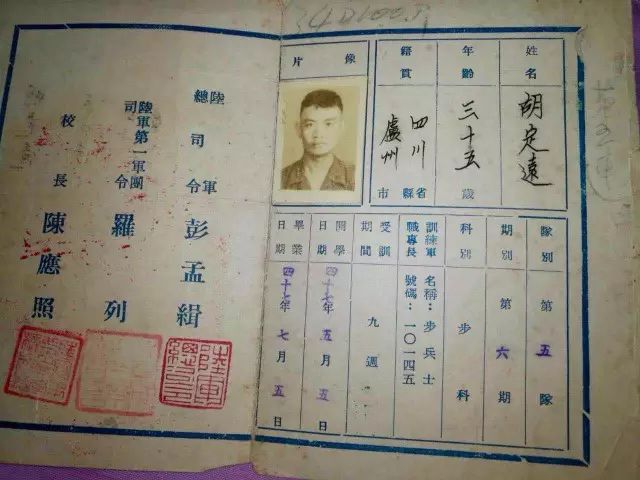 姓名 胡定遠
年齡 三十五歲
籍貫 四川省 盧州縣市
像片
隊別 第五隊
期別 第六期
科別 步科
訓練軍職專長 名稱：步兵士
號碼：一〇一四五
受訓期間 九週
開學日期 四十七年五月五日
畢業日期 四十七年七月五日
陸軍總司令 彭孟緝
陸軍第一軍團司令 羅列
校長 陳應照